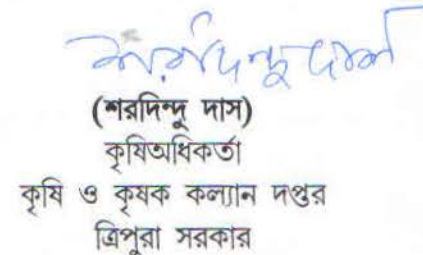 শরদিন্দু দাস
(শরদিন্দু দাস)
কৃষিঅধিকর্তা
কৃষি ও কৃষক কল্যান দপ্তর
ত্রিপুরা সরকার